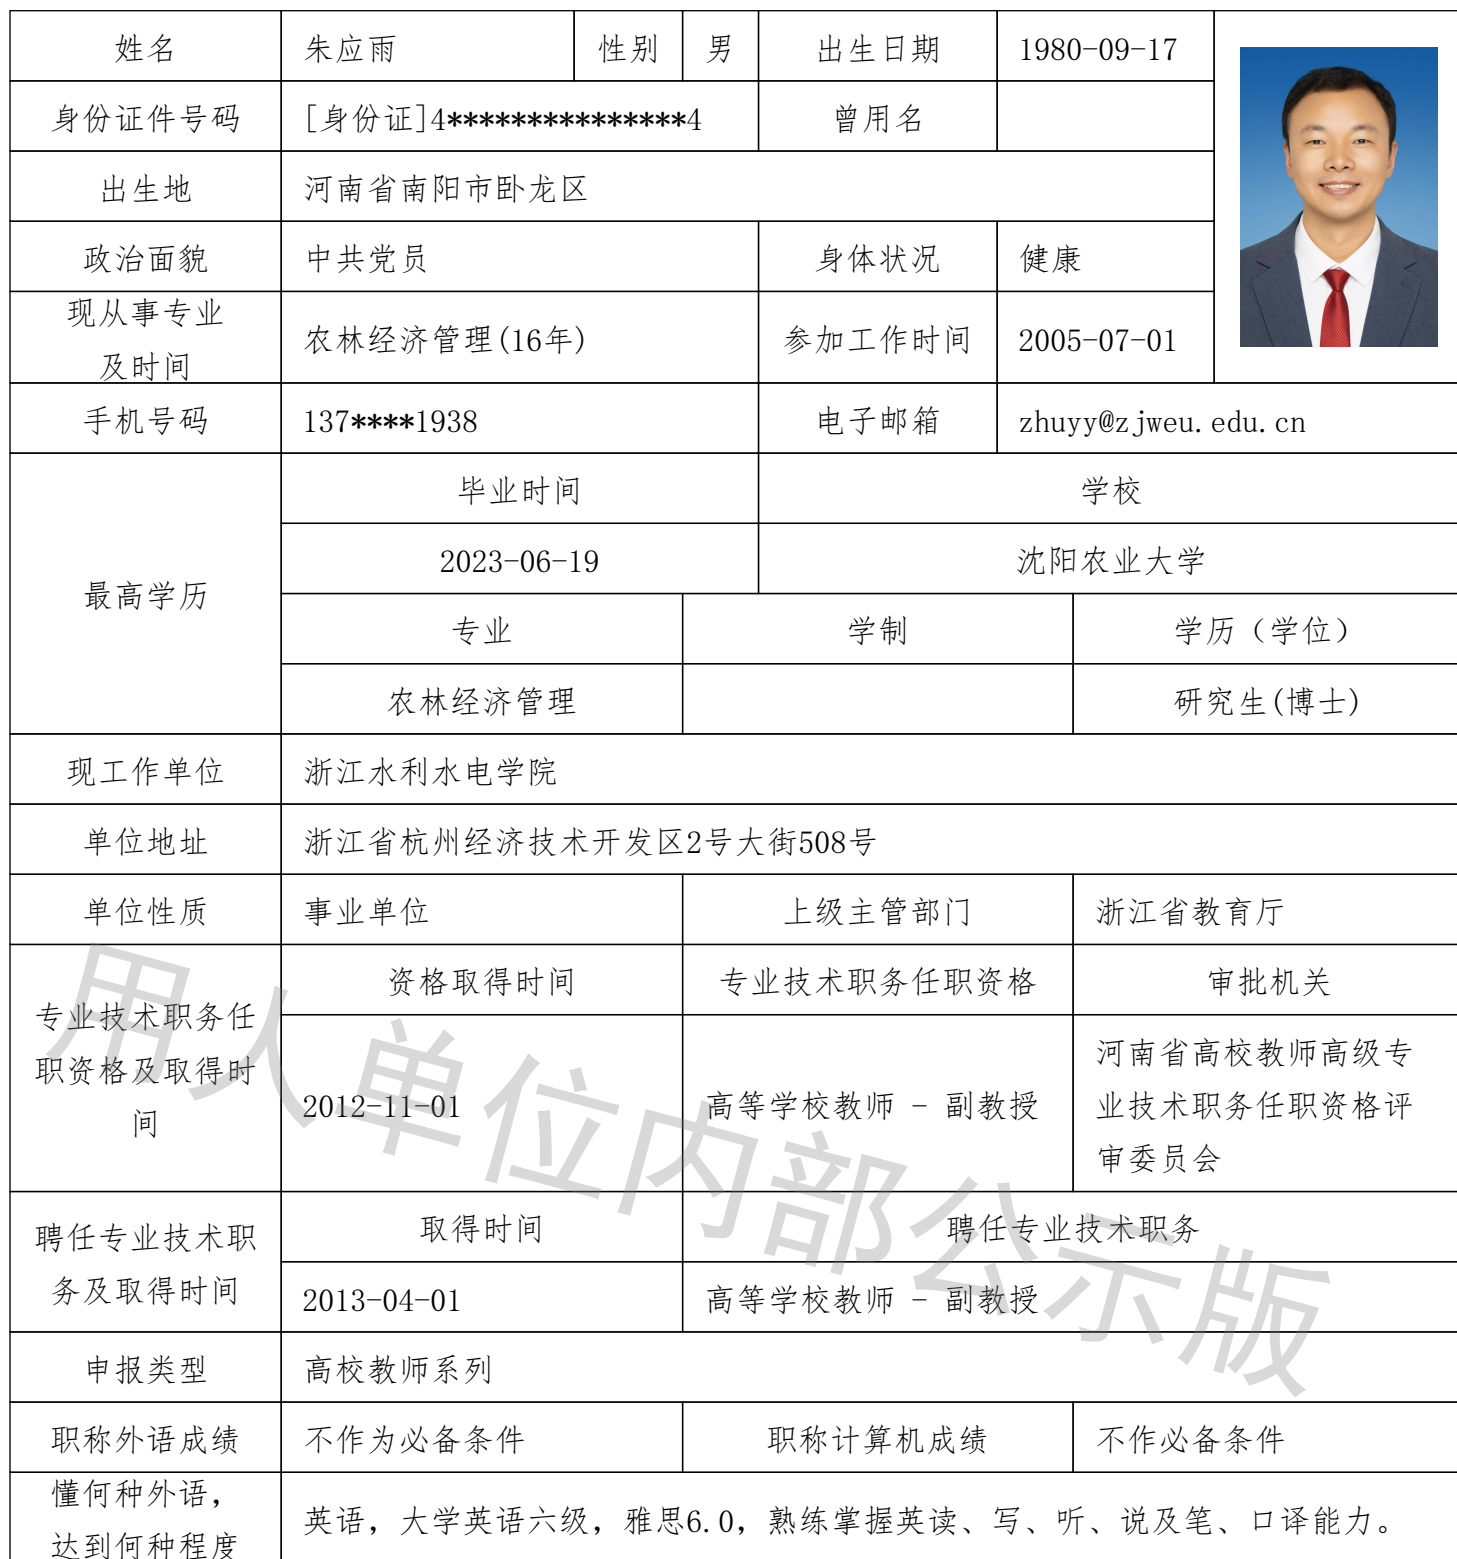 姓名 朱应雨 性别 男 出生日期 1980-09-17
身份证件号码 [身份证]4***************4 曾用名
出生地 河南省南阳市卧龙区
政治面貌 中共党员 身体状况 健康
现从事专业
及时间
农林经济管理(16年) 参加工作时间 2005-07-01
手机号码 137****1938 电子邮箱 zhuyy@zjweu.edu.cn
最高学历
毕业时间 学校
2023-06-19 沈阳农业大学
专业 学制 学历（学位）
农林经济管理 研究生(博士)
现工作单位 浙江水利水电学院
单位地址 浙江省杭州经济技术开发区2号大街508号
单位性质 事业单位 上级主管部门 浙江省教育厅
专业技术职务任
职资格及取得时
间
资格取得时间 专业技术职务任职资格 审批机关
2012-11-01 高等学校教师 - 副教授
河南省高校教师高级专
业技术职务任职资格评
审委员会
聘任专业技术职
务及取得时间
取得时间 聘任专业技术职务
2013-04-01 高等学校教师 - 副教授
申报类型 高校教师系列
职称外语成绩 不作为必备条件 职称计算机成绩 不作必备条件
懂何种外语，
达到何种程度
英语，大学英语六级，雅思6.0，熟练掌握英读、写、听、说及笔、口译能力。
用人单位内部公示版